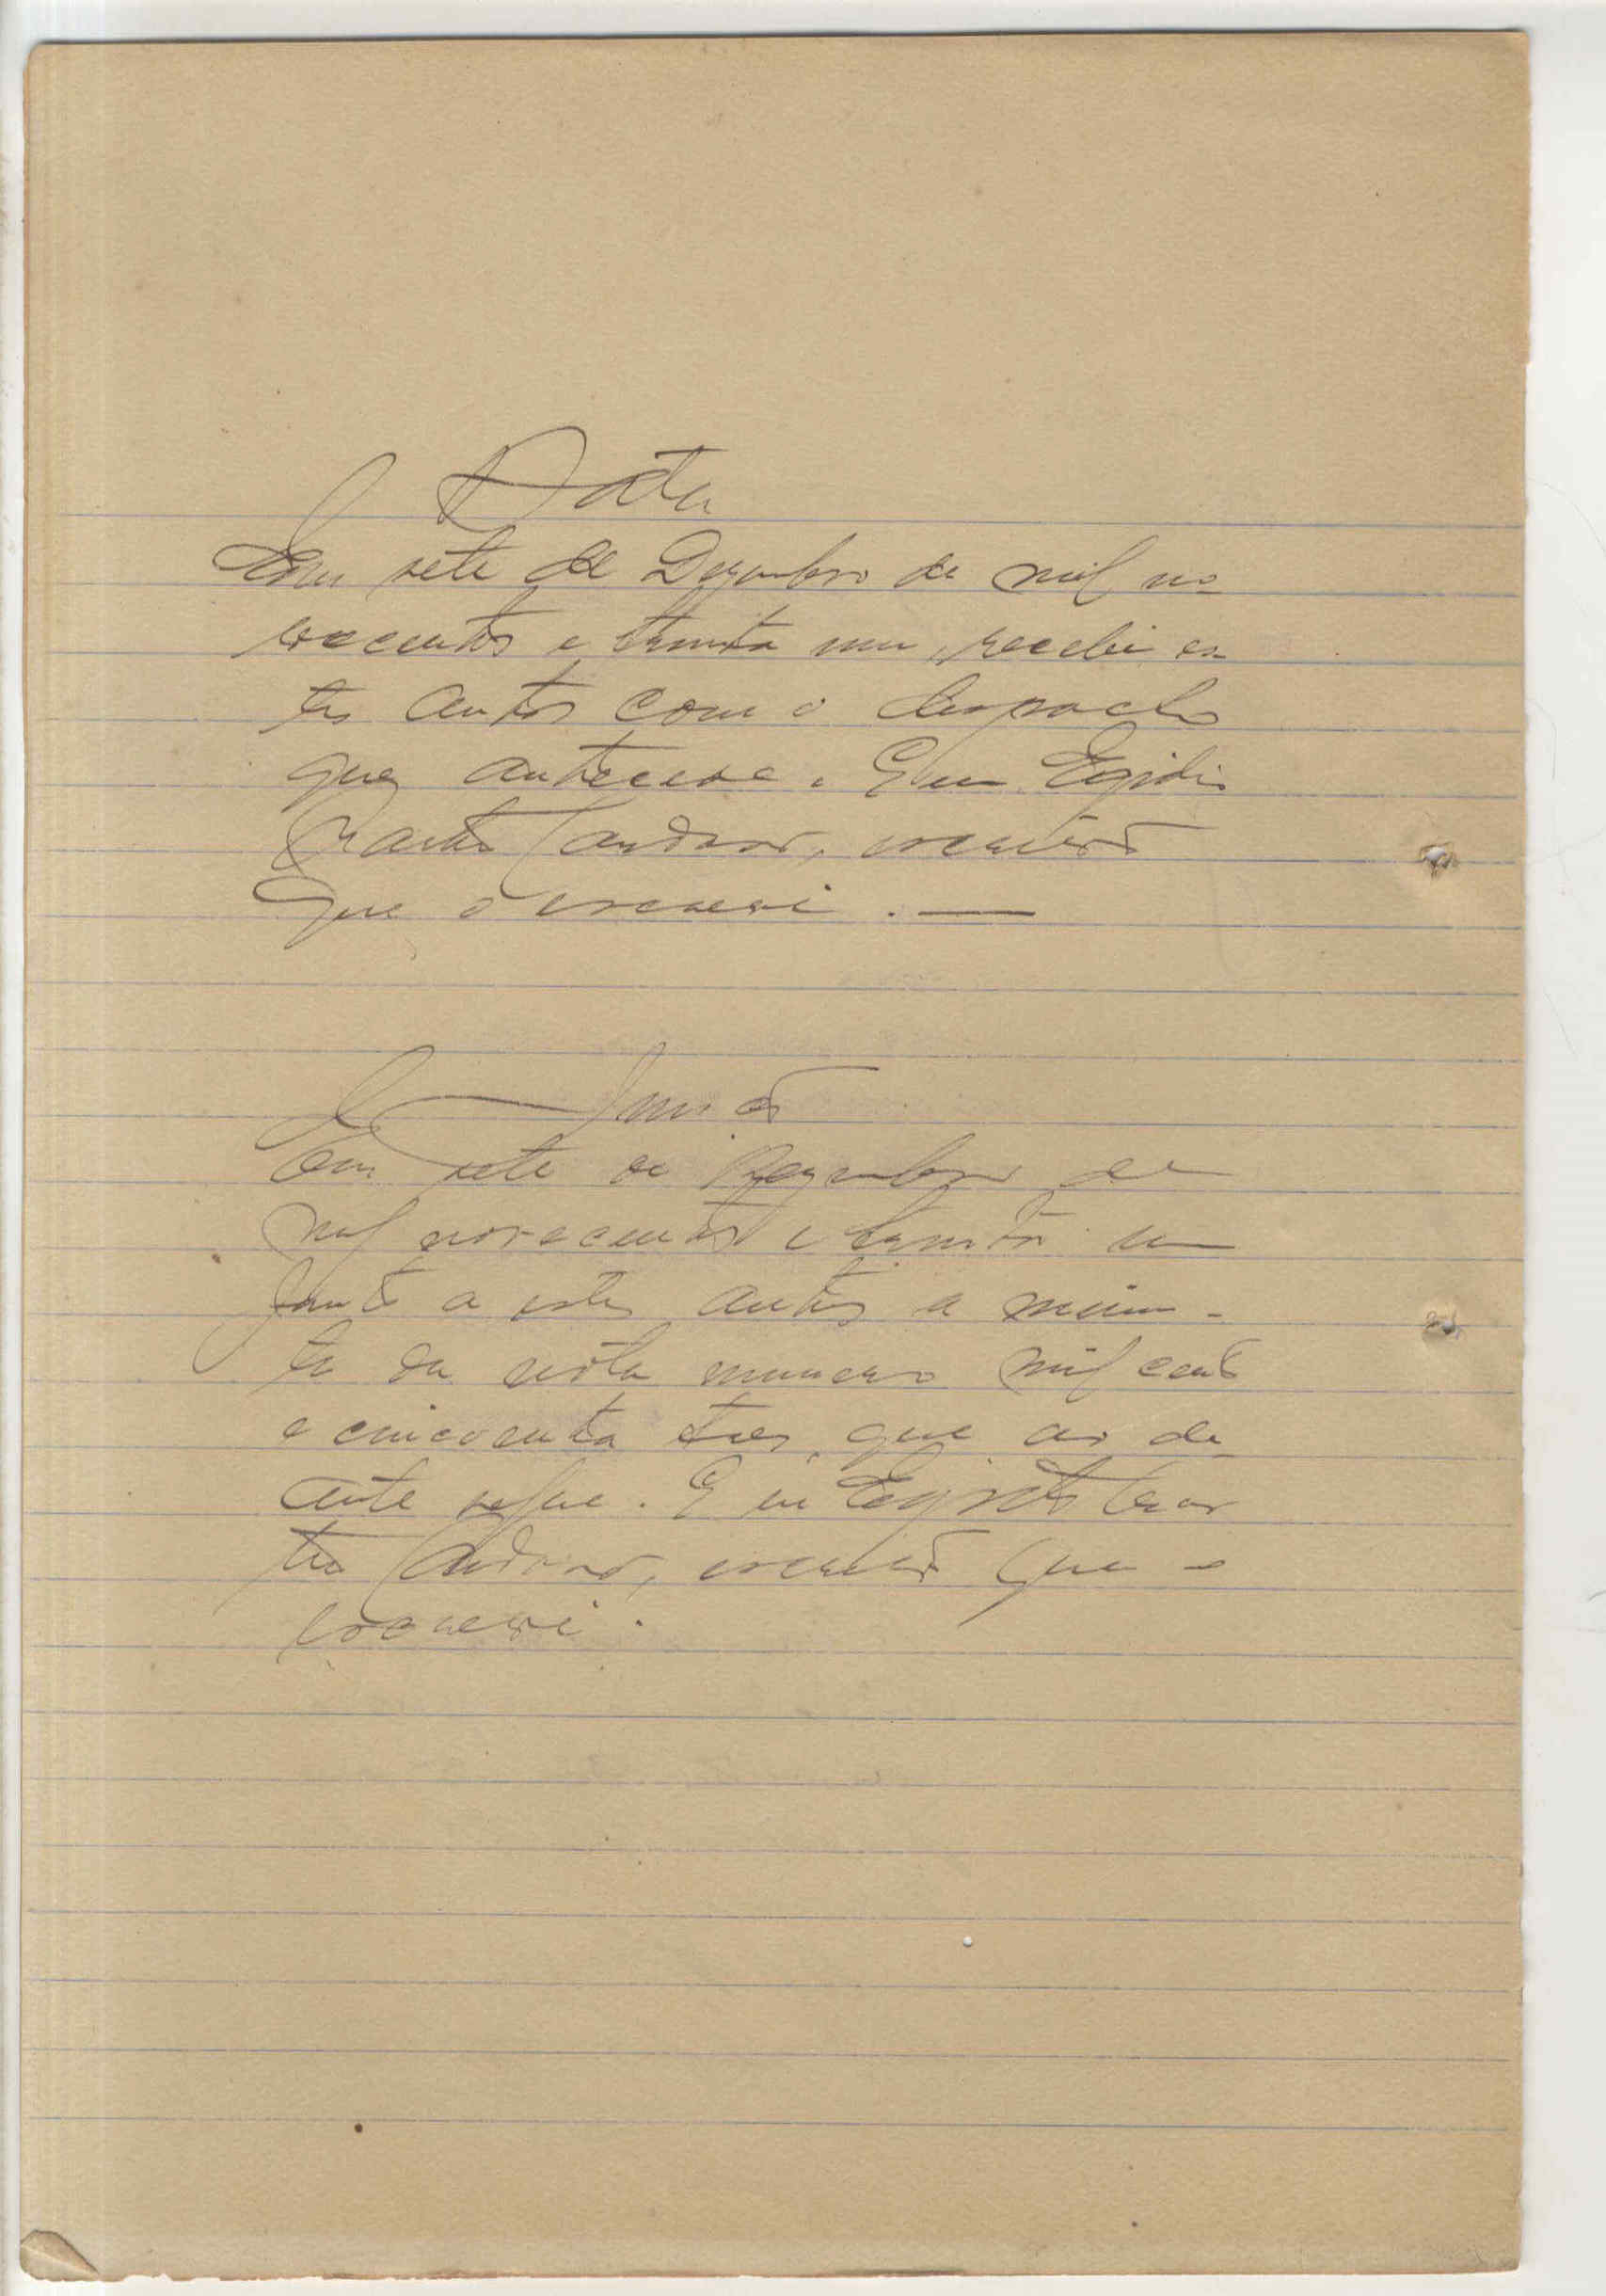 Data
Em sete de Dezembro de mil no-
vecentos e trinta um, recebi es-
tes autos com o despacho
que antecede. E eu Egidio
escrivão
que o escrevi. —
Juntada
Em sete de Dezembro de
mil novecentos e trinta um
junto a estes autos a minu-
ta da nota numero mil cento
e cincoenta tres, que ao de-
ante segue. E eu Egidio
escrivão que o
escrevi.